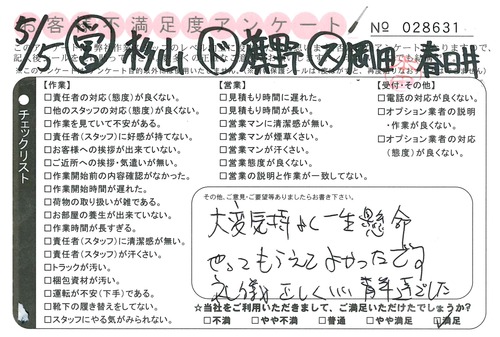 お客様不満足度アンケート
№ 028631
5/5 営 杉山 ド 荻野 ス 岡田 春日井
チェックリスト
【作業】
□責任者の対応(態度)が良くない。
□他のスタッフの対応(態度)が良くない。
□作業を見ていて不安がある。
□責任者(スタッフ)に好感が持てない。
□お客様への挨拶が出来ていない。
□ご近所への挨拶・気遣いが無い。
□作業開始前の内容確認がなかった。
□作業開始時間が遅れた。
□荷物の取り扱いが雑である。
□お部屋の養生が出来ていない。
□作業時間が長すぎる。
□責任者(スタッフ)に清潔感が無い。
□責任者(スタッフ)が汗くさい。
□トラックが汚い。
□梱包資材が汚い。
□運転が不安(下手)である。
□靴下の履き替えをしてない。
□スタッフにやる気がみられない。
【営業】
□見積もり時間に遅れた。
□見積もり時間が長い。
□営業マンに清潔感が無い。
□営業マンが煙草くさい。
□営業マンが汗くさい。
□営業態度が良くない。
□営業の説明と作業が一致してない。
【受付・その他】
□電話の対応が良くない。
□オプション業者の説明・作業が良くない。
□オプション業者の対応(態度)が良くない。
その他、ご意見・ご要望等ありましたらお書き下さい。
大変気持よく一生懸命
やってもらえてよかったです
礼儀正しくいい青年達でした
☆当社をご利用いただきまして、ご満足いただけたでしょうか?
□不満 □やや不満 □普通 □やや満足 □満足